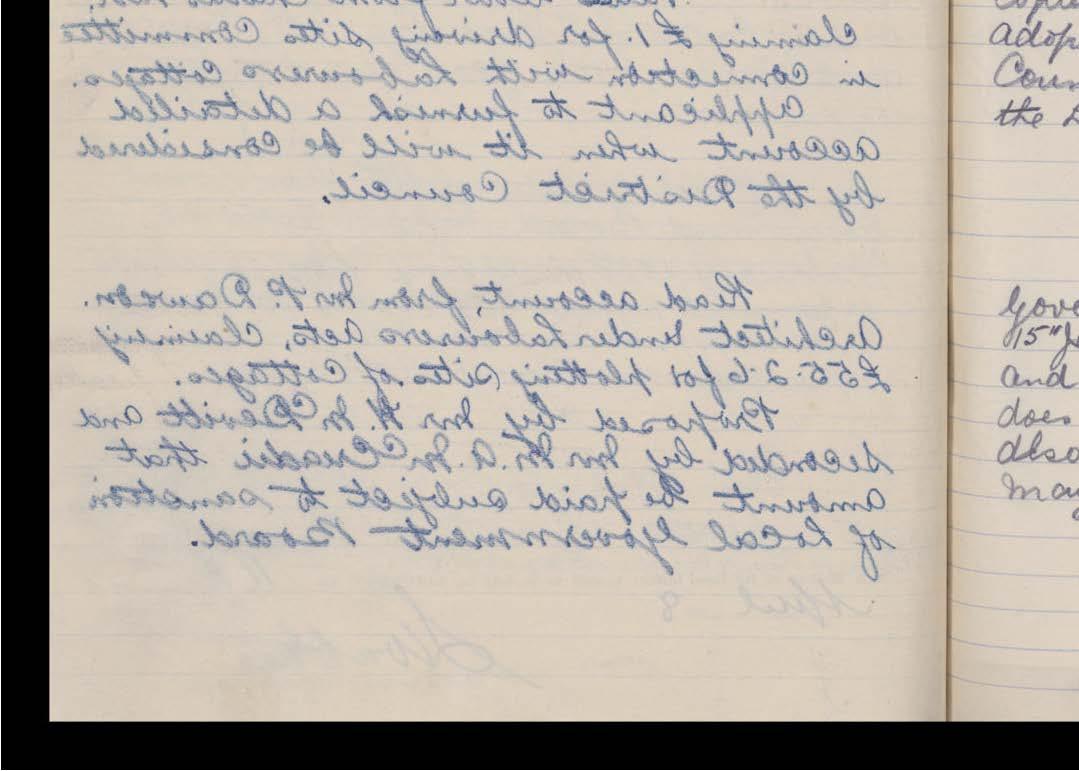 claiming £1. for driving Sites Committee
in connection with Labourers Cottages.
Applicant to furnish a detailed
account when it will be considered
by the District Council.
Read account, from Mr P. Dawson.
Architect under Labourers Acts, Claiming
£55.2.6 for plotting Sites of Cottages.
Proposed by Mr H. McDevitt and
seconded by Mr M. A. McCreadie that
amount be paid subject to sanction
of Local Government Board.
April 8
adop
Coun
the L
Gove
15"
and
does
also
May